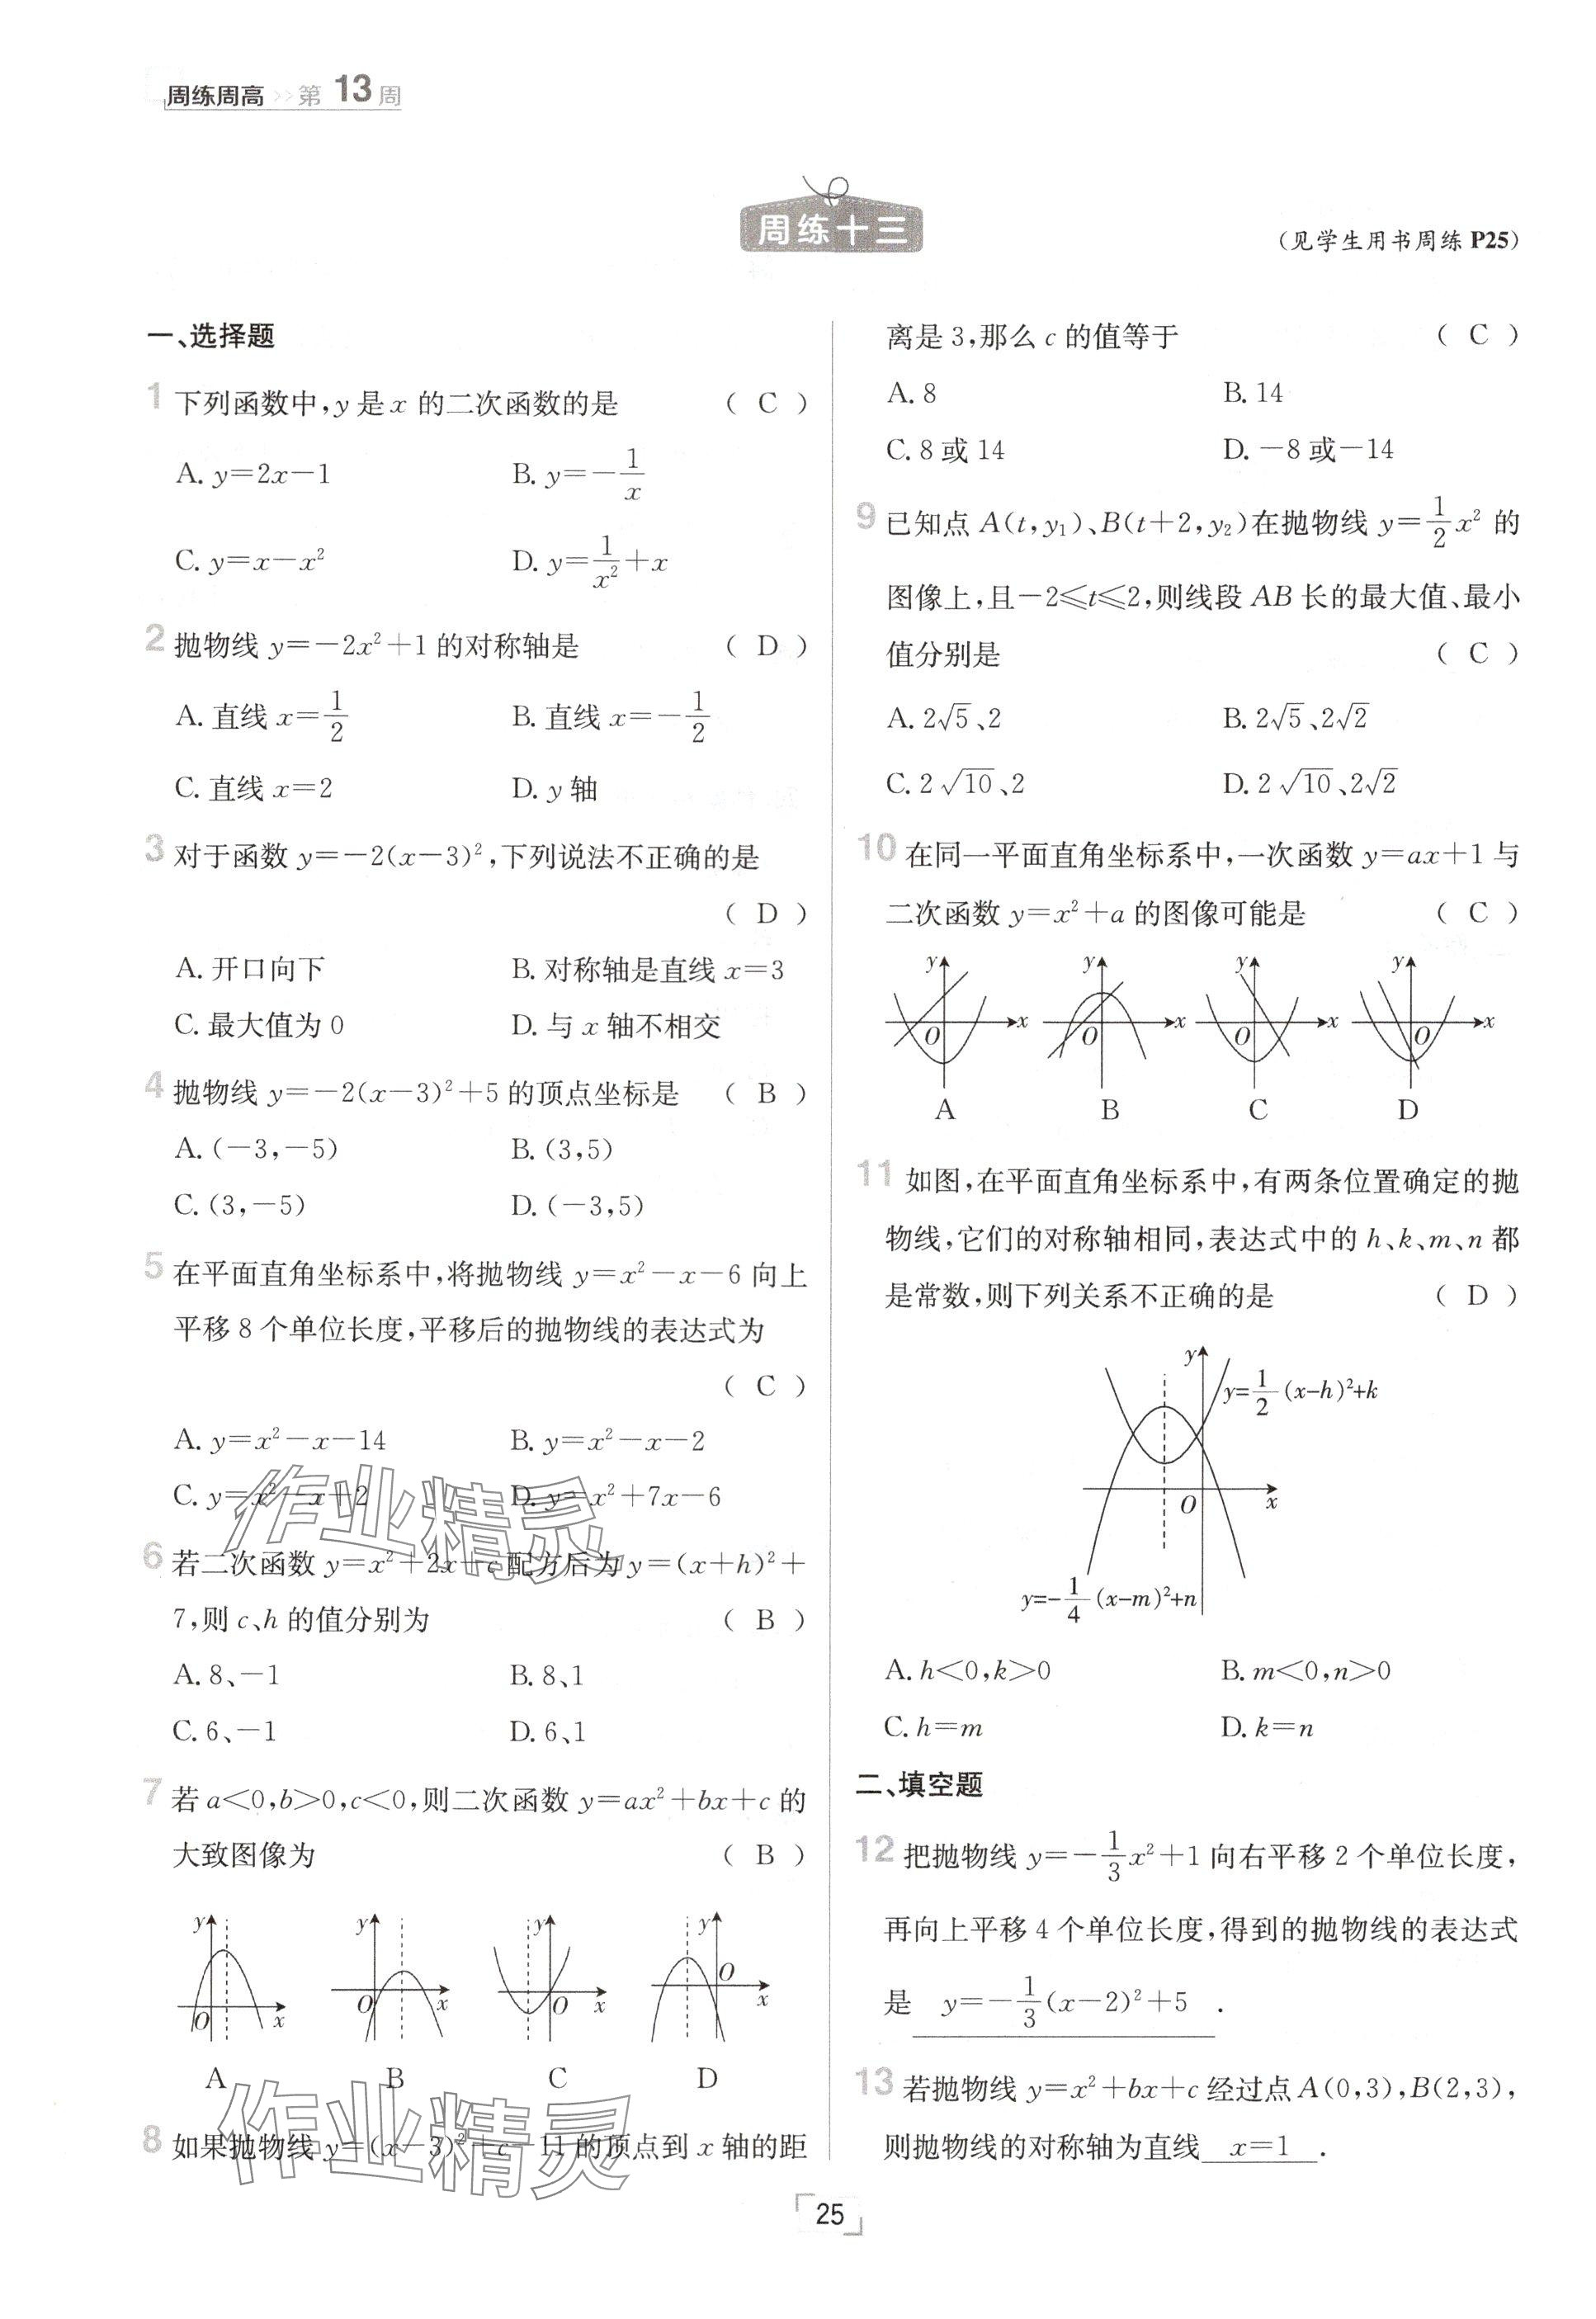 周练周高 >> 第 13 周
周练十三
(见学生用书周练 P25)
一、选择题
1 下列函数中,y 是 x 的二次函数的是 ( C )
A. y=2x-1 B. y=-1/x
C. y=x-x² D. y=1/x²+x
2 抛物线 y=-2x²+1 的对称轴是 ( D )
A. 直线 x=1/2 B. 直线 x=-1/2
C. 直线 x=2 D. y 轴
3 对于函数 y=-2(x-3)²,下列说法不正确的是
( D )
A. 开口向下 B. 对称轴是直线 x=3
C. 最大值为 0 D. 与 x 轴不相交
4 抛物线 y=-2(x-3)²+5 的顶点坐标是 ( B )
A. (-3,-5) B. (3,5)
C. (3,-5) D. (-3,5)
5 在平面直角坐标系中,将抛物线 y=x²-x-6 向上
平移 8 个单位长度,平移后的抛物线的表达式为
( C )
A. y=x²-x-14 B. y=x²-x-2
C. y=x²-x+2 D. y=x²+7x-6
作业精灵
6 若二次函数 y=x²+2x+c 配方后为 y=(x+h)²+
7,则 c、h 的值分别为 ( B )
A. 8、-1 B. 8、1
C. 6、-1 D. 6、1
7 若 a<0,b>0,c<0,则二次函数 y=ax²+bx+c 的
大致图像为 ( B )
y O x y O x y O x y O x
A B C D
作业精灵
8 如果抛物线 y=(x-3)²-c-11 的顶点到 x 轴的距
离是 3,那么 c 的值等于 ( C )
A. 8 B. 14
C. 8 或 14 D. -8 或-14
9 已知点 A(t,y₁)、B(t+2,y₂)在抛物线 y=1/2x² 的
图像上,且-2≤t≤2,则线段 AB 长的最大值、最小
值分别是 ( C )
A. 2√5、2 B. 2√5、2√2
C. 2√10、2 D. 2√10、2√2
10 在同一平面直角坐标系中,一次函数 y=ax+1 与
二次函数 y=x²+a 的图像可能是 ( C )
y O x y O x y O x y O x
A B C D
11 如图,在平面直角坐标系中,有两条位置确定的抛
物线,它们的对称轴相同,表达式中的 h、k、m、n 都
是常数,则下列关系不正确的是 ( D )
y
y=1/2(x-h)²+k
O x
y=-1/4(x-m)²+n
A. h<0,k>0 B. m<0,n>0
C. h=m D. k=n
二、填空题
12 把抛物线 y=-1/3x²+1 向右平移 2 个单位长度,
再向上平移 4 个单位长度,得到的抛物线的表达式
是 y=-1/3(x-2)²+5 .
13 若抛物线 y=x²+bx+c 经过点 A(0,3),B(2,3),
则抛物线的对称轴为直线 x=1 .
25